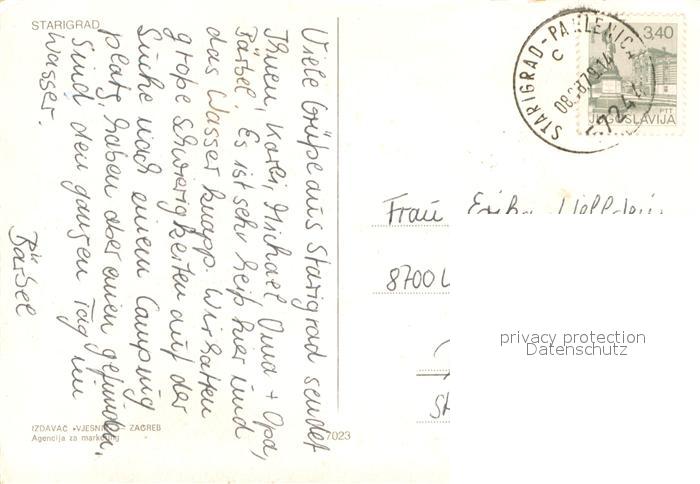 STARIGRAD
Viele Grüße aus Starigrad sendet
Ihnen, Karli, Michael Oma + Opa,
Bärbel. Es ist sehr heiß hier und
das Wasser knapp. Wir hatten
große Schwierigkeiten auf der
Suche nach einem Camping
platz, haben aber einen gefunden.
Sind den ganzen Tag im
Wasser.
Bärbel
IZDAVAČ »VJESNIK« — ZAGREB
Agencija za marketing
7023
STARIGRAD-PAKLENICA
C
3,40
PTT
JUGOSLAVIJA
Frau Erika
8700
privacy protection
Datenschutz